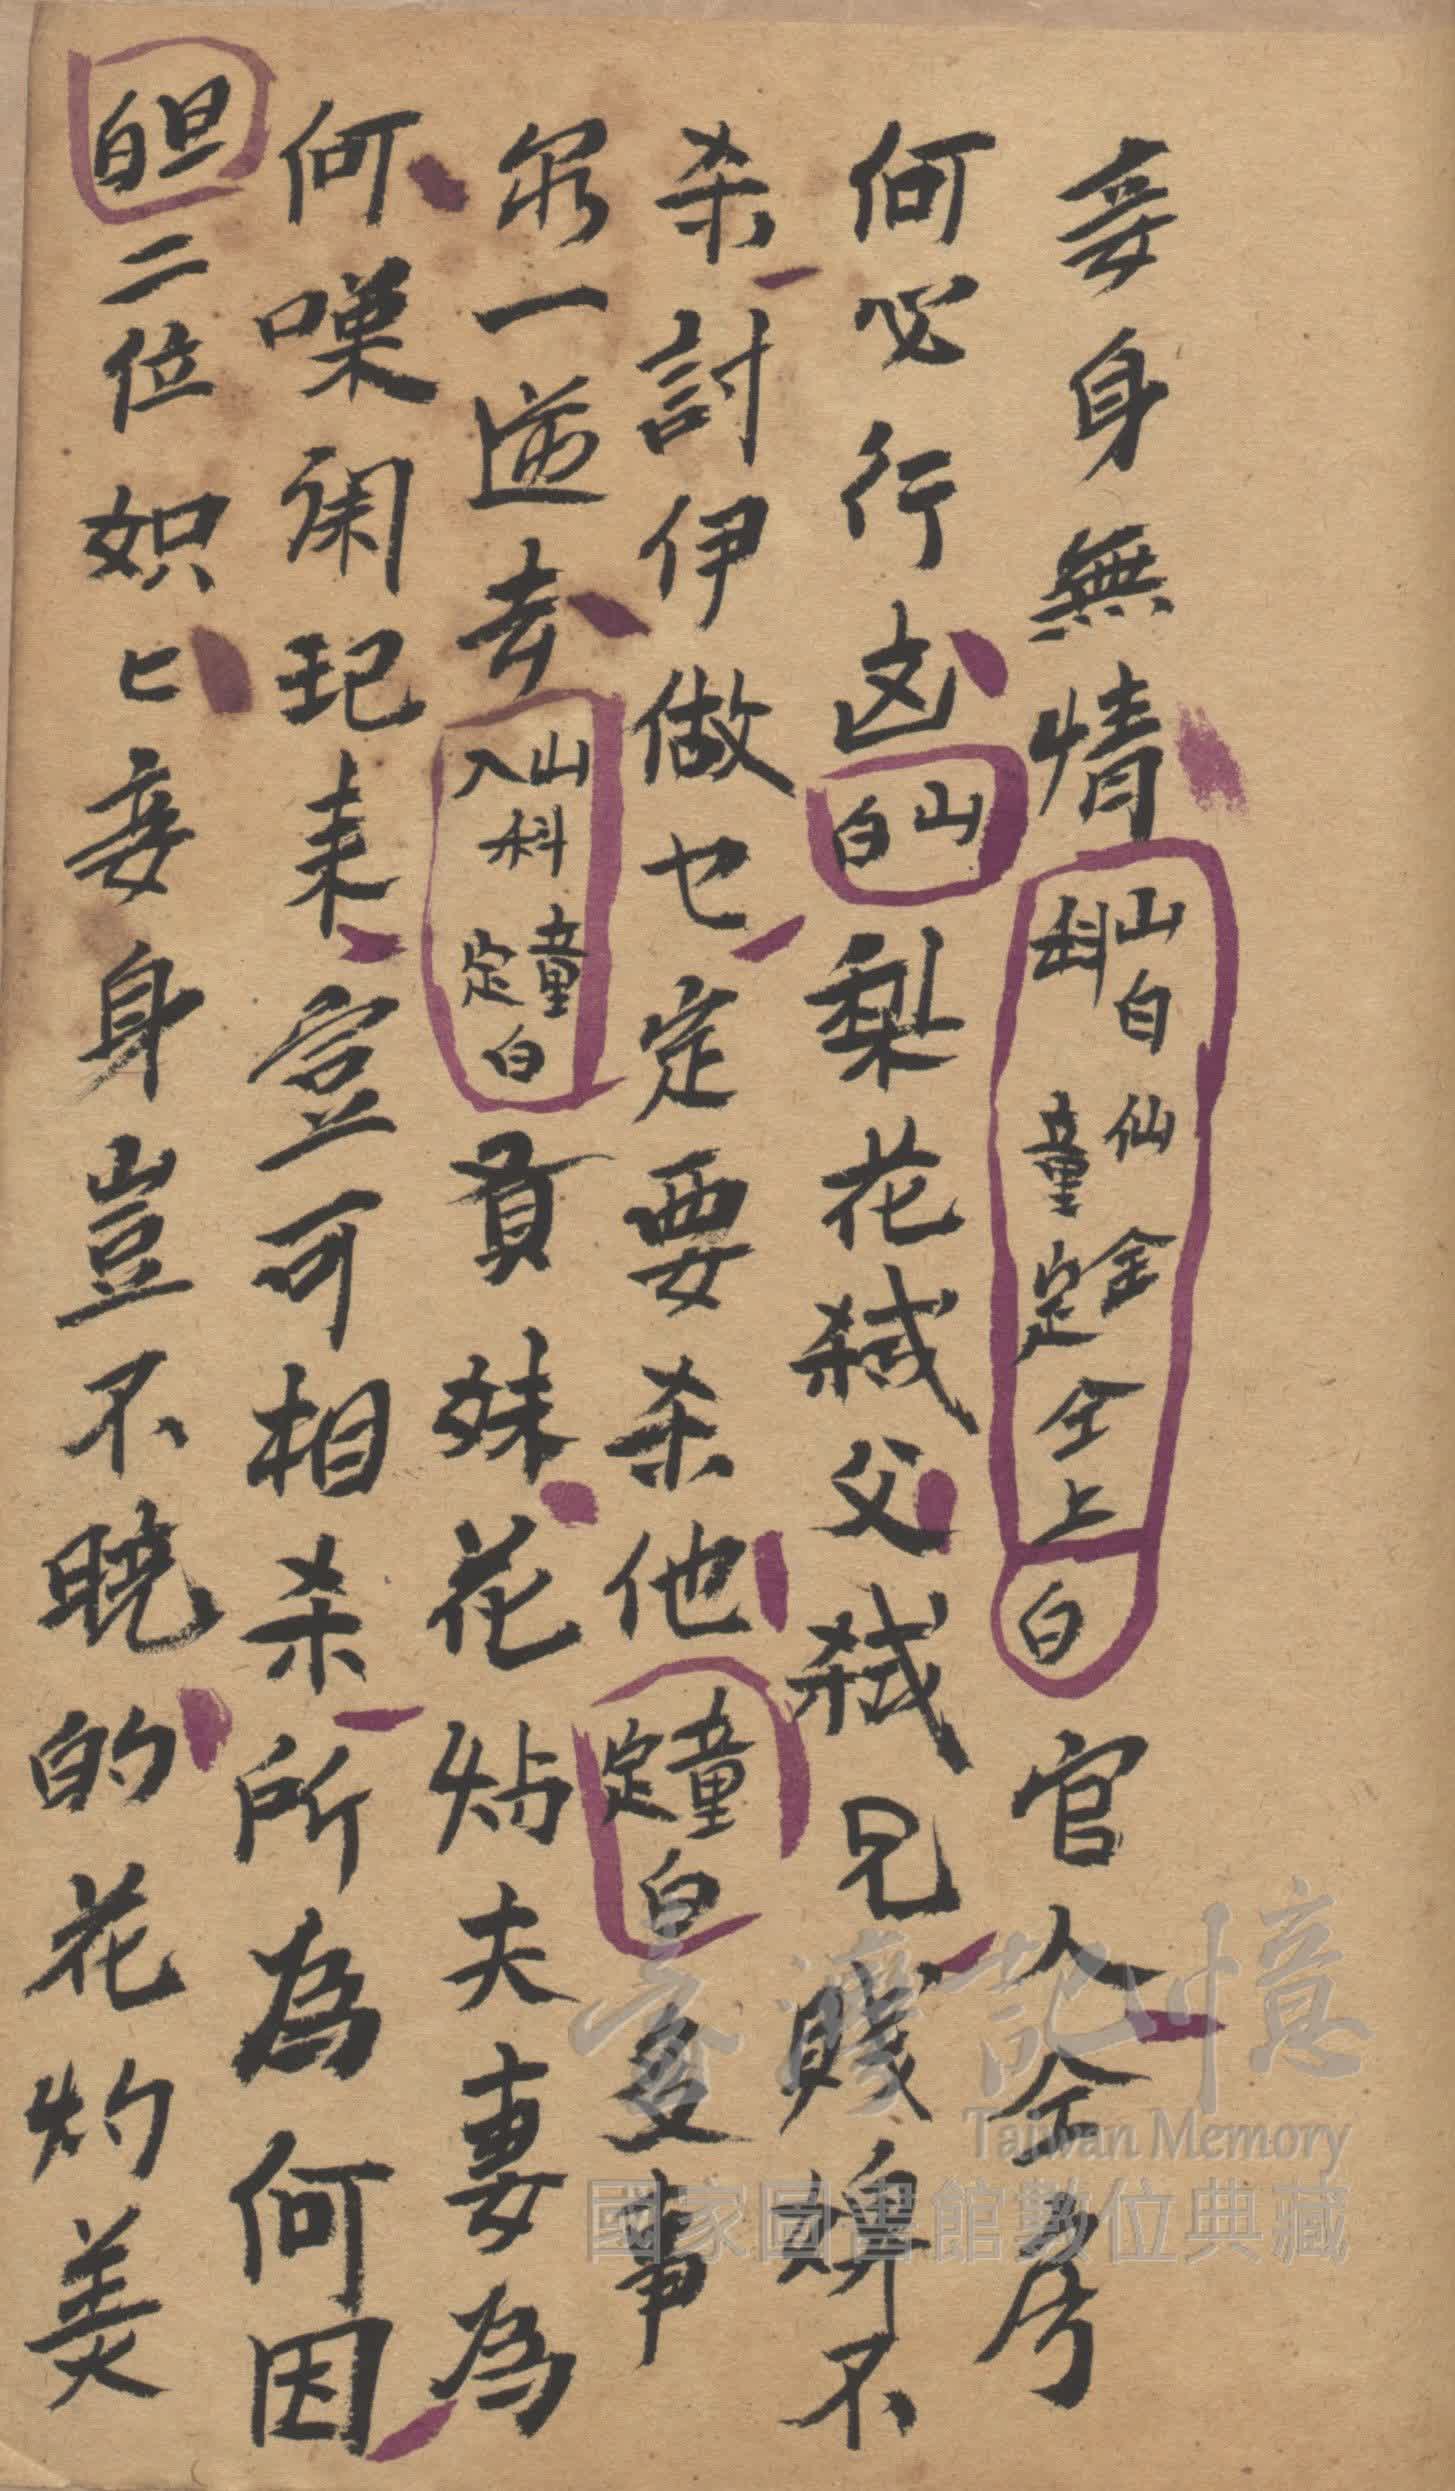 妾身無情山白科仙童金定仝上白官人仝考
何必行凶山白梨花弒父弒兄賤婢不
杀討伊做乜定要杀他童定白是事
尔一送去山入科童定白賢妹花灼夫妻為
何嘆闹起来豈可相杀所為何因
旦白二位姐匕妾身豈不曉的花灼美
台灣記憶
Taiwan Memory
國家圖書館數位典藏